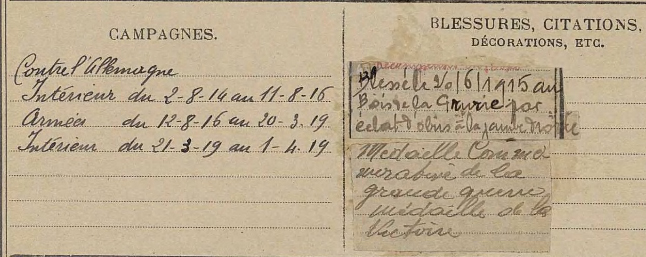 CAMPAGNES.
Contre l'Allemagne
Intérieur du 2-8-14 au 11-8-16
Armées du 12-8-16 au 20-3-19
Intérieur du 21-3-19 au 1-4-19
BLESSURES, CITATIONS,
DÉCORATIONS, ETC.
Blessé le 20/6/1915 au
Bois de la Grurie par
éclat d'obus à la jambe droite
Médaille Commé
morative de la
grande guerre
médaille de la
Victoire